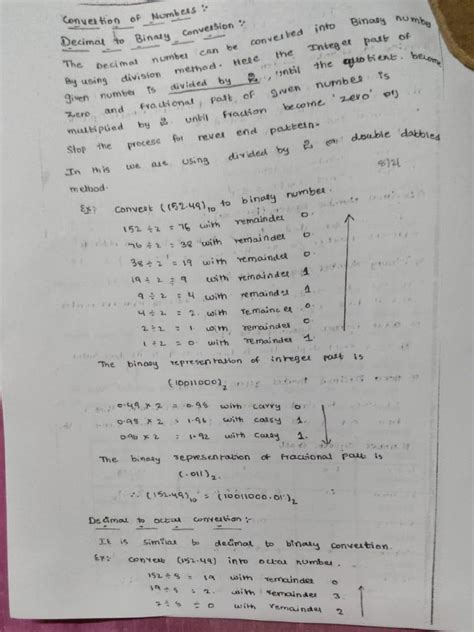 Convertion of Numbers :-
Decimal to Binary Convertion :-
The Decimal number can be converted into Binary number
By using division method. Here the Integer part of
given number is divided by 2, until the quotient become
zero and fractional part of given number is
multiplied by 2 until fraction become 'zero' or
Stop the process for never end pattern.
In this we are using divided by 2 or double dabbled
method.
Ex:- Convert (152.49)10 to binary number.
152 ÷ 2 = 76 with remainder 0.
76 ÷ 2 = 38 with remainder 0.
38 ÷ 2 = 19 with remainder 0.
19 ÷ 2 = 9 with remainder 1
9 ÷ 2 = 4 with remainder 1
4 ÷ 2 = 2 with remainder 0.
2 ÷ 2 = 1 with remainder 0.
1 ÷ 2 = 0 with remainder 1
The binary representation of integer part is
(10011000)2
0.49 × 2 = 0.98 with carry 0.
0.98 × 2 = 1.96 with carry 1.
0.96 × 2 = 1.92 with carry 1.
The binary representation of fractional part is
(.011)2.
∴ (152.49)10 = (10011000.01)2
Decimal to octal convertion :-
It is similar to decimal to binary convertion.
Ex:- convert (152.49) into octal number.
152 ÷ 8 = 19 with remainder 0
19 ÷ 8 = 2 with remainder 3
2 ÷ 8 = 0 with remainder 2